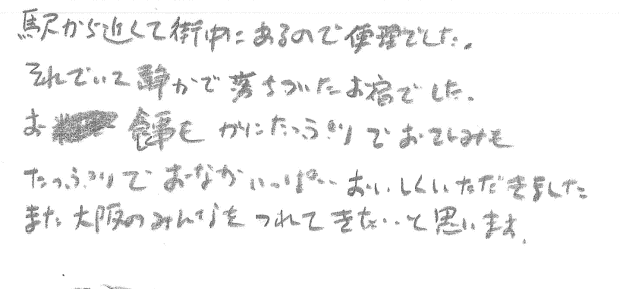 駅から近くて街中にあるので便理でした。
それでいて静かで落ちついたお宿でした。
お 食事も かにたっぷりで おさしみも
たっぷりで おなかいっぱい おいしくいただきました
また大阪のみんなを つれてきたいと思います。